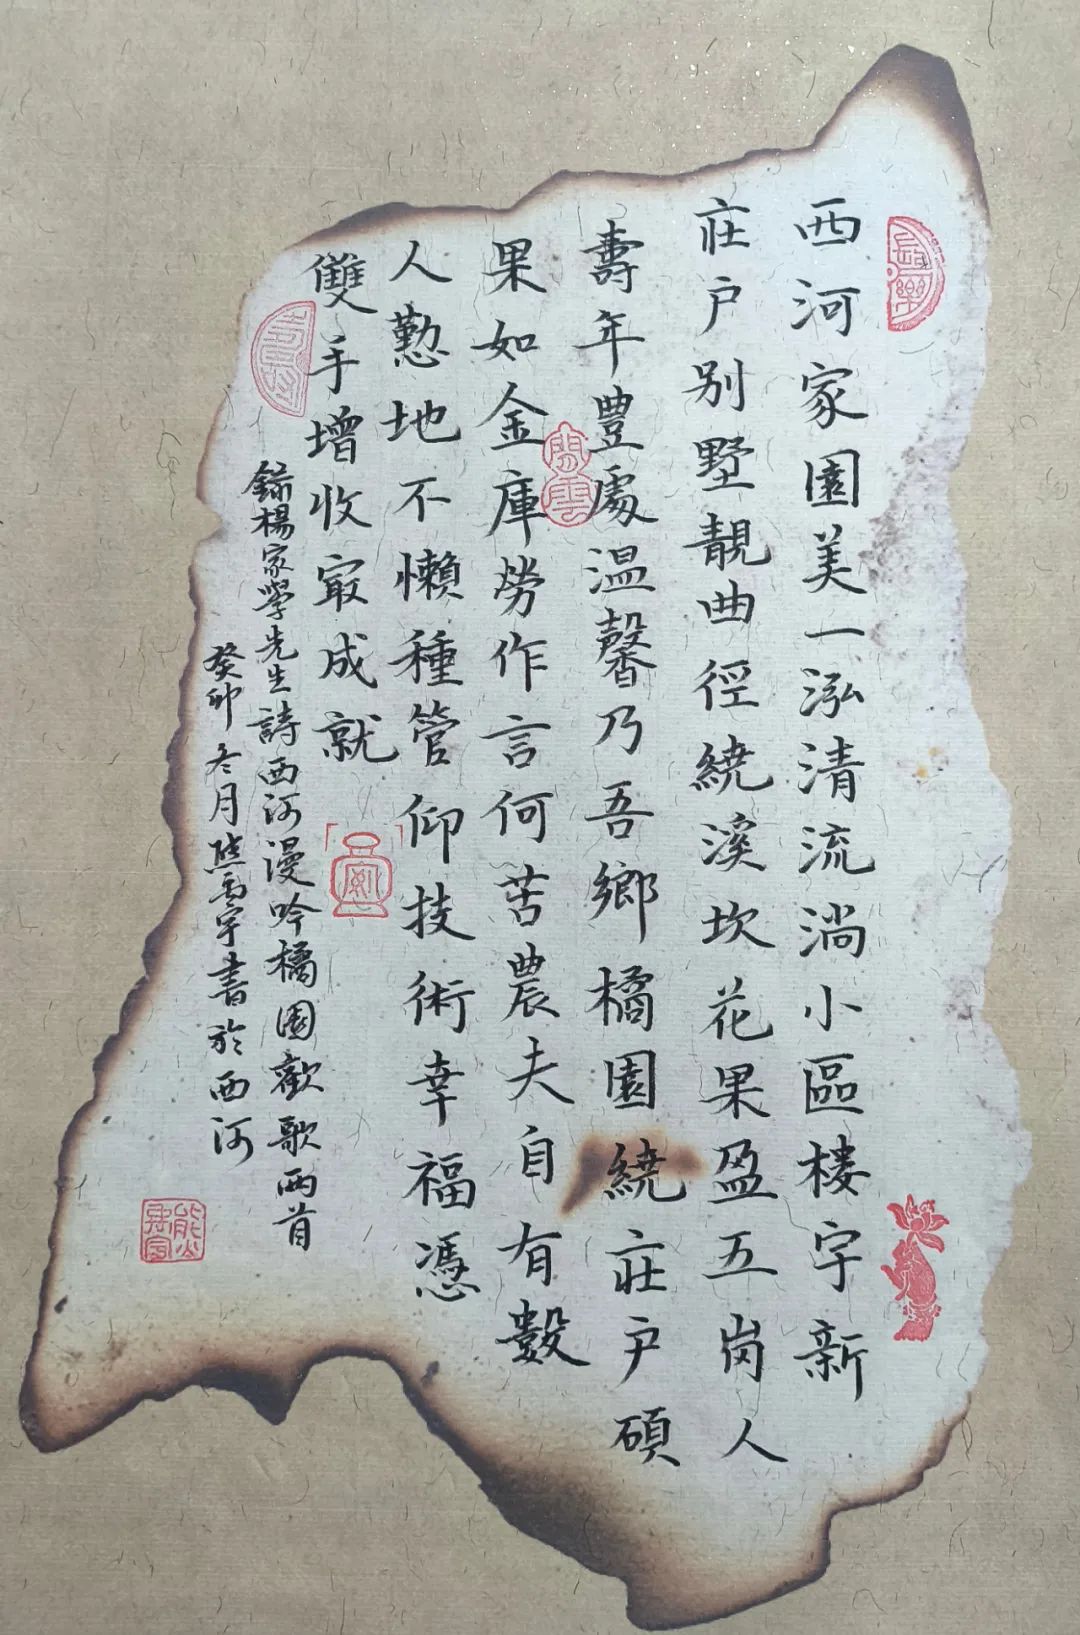 西河家園美一泓清流淌小區楼宇新
莊户别墅靚曲徑繞溪坎花果盈五崗人
壽年豊處温馨乃吾鄉橘園繞莊户碩
果如金庫勞作言何苦農夫自有數
人懃地不懒種管仰技術幸福憑
雙手增收冣成就
錄楊家學先生詩西河漫吟橘園歡歌兩首
癸卯冬月熊昌宇書於西河
長樂
閒雲